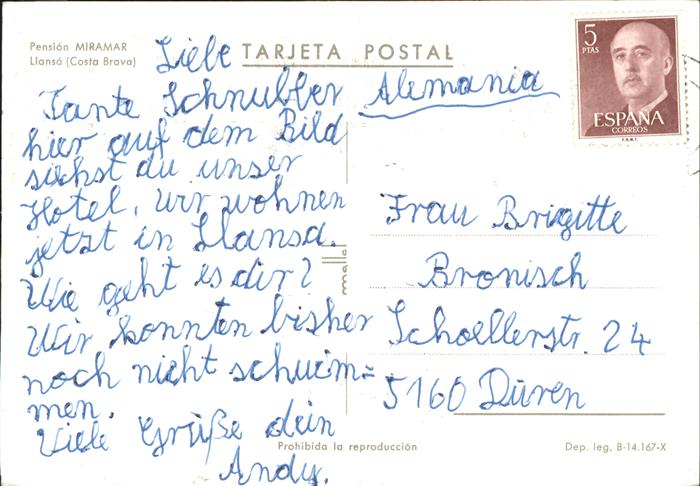 Pensión MIRAMAR
Llansá (Costa Brava)
TARJETA POSTAL
5
PTAS
ESPAÑA
CORREOS
F.N.M.T.
Liebe
Tante Schnubber
hier auf dem Bild
siehst du unser
Hotel, wir wohnen
jetzt in Llansa.
Wie geht es dir?
Wir konnten bisher
noch nicht schwim=
men.
Viele Grüße dein
Andy.
Alemania
Frau Brigitte
Bronisch
Schoellerstr. 24
5160 Düren
Prohibida la reproducción
Dep. leg. B-14.167-X